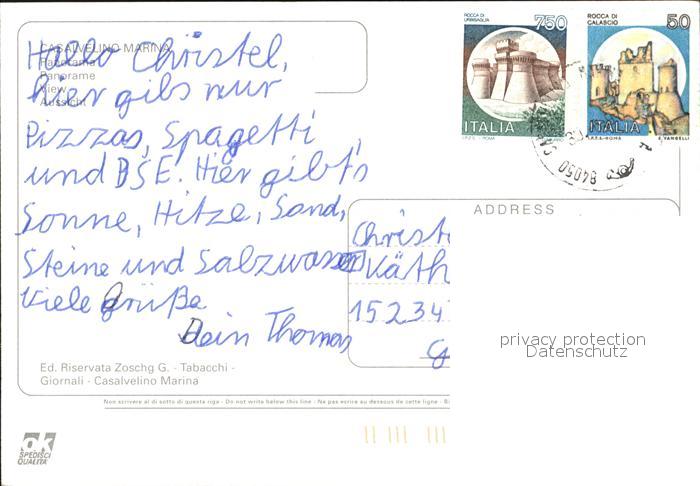 CASALVELINO MARINA
Panorama
Panorame
View
Aussicht
Hallo Christel,
hier gibs nur
Pizzas, Spagetti,
und BSE. Hier gibt's
Sonne, Hitze, Sand,
Steine und Salzwasser
Viele Grüße
Dein Thomas
ROCCA DI
URBISAGLIA
750
ITALIA
I.P.Z.S. - ROMA
ROCCA DI
CALASCIO
50
ITALIA
I.P.Z.S. - ROMA E. VANGELLI
84050
ADDRESS
Christ
Käth
15234
G
privacy protection
Datenschutz
Ed. Riservata Zoschg G. - Tabacchi -
Giornali - Casalvelino Marina
Non scrivere al di sotto di questa riga - Do not write below this line - Ne pas écrire au dessous de cette ligne -
ok
SPEDISCI
QUALITÀ